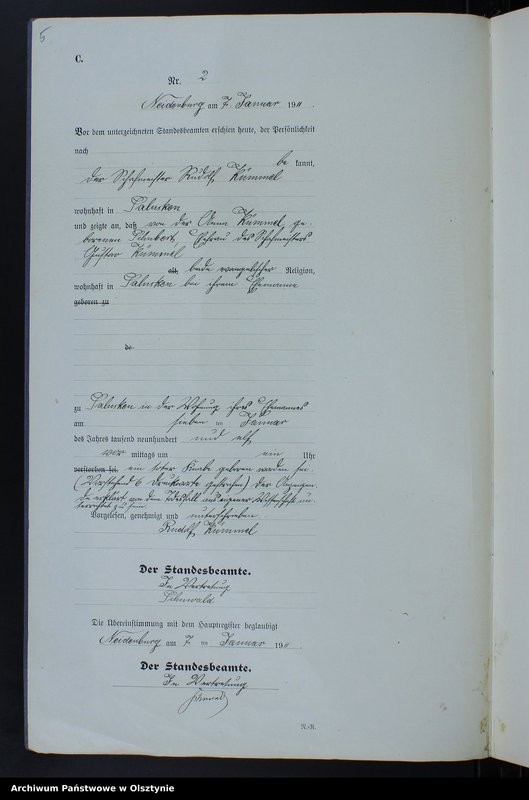 5
C.
Nr. 2
Neidenburg am 7. Januar 1911.
Vor dem unterzeichneten Standesbeamten erschien heute, der Persönlichkeit
nach
be kannt,
der Schafmeister Rudolf Kümmel
wohnhaft in Saluskен
und zeigte an, daß von der Anna Kümmel, ge-
borenen Schubert, Ehefrau des Schafmeisters
Gustav Kümmel
alt, beide evangelischer Religion,
wohnhaft in Salusken bei ihrem Ehemanne
geboren zu
do
zu Salusken in der Wohnung ihres Ehemannes
am sieben ten Januar
des Jahres tausend neunhundert und elf
vor mittags um ein Uhr
verstorben sei. ein toter Knabe geboren worden sei.
(Vorstehend 6 Druckworte gestrichen) der Anzeigen-
de erklärt von dem Todesfall aus eigener Wissenschaft un-
terrichtet zu sein.
Vorgelesen, genehmigt und unterschrieben
Rudolf Kümmel
Der Standesbeamte.
In Vertretung
Die Übereinstimmung mit dem Hauptregister beglaubigt
Neidenburg am 7. ten Januar 1911.
Der Standesbeamte.
In Vertretung
N.-R.
Archiwum Państwowe w Olsztynie